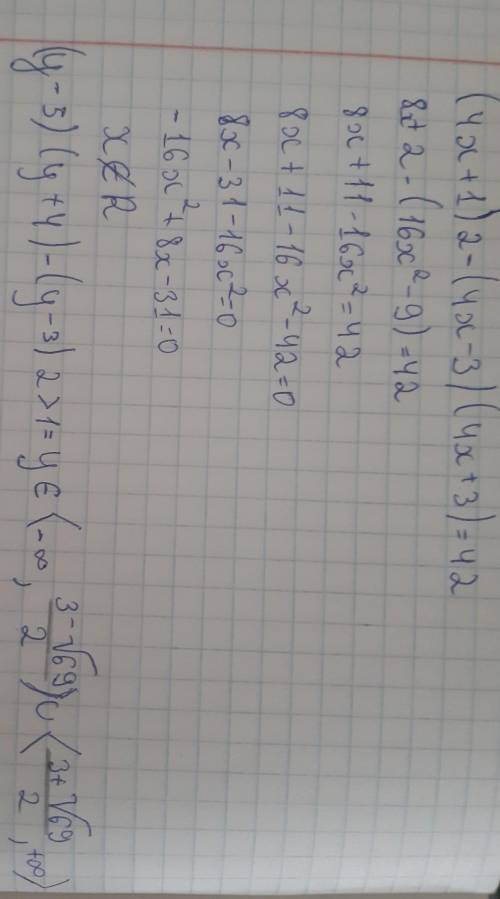 (4x+1)2-(4x-3)(4x+3)=42
8x+2-(16x²-9)=42
8x+11-16x²=42
8x+11-16x²-42=0
8x-31-16x²=0
-16x²+8x-31=0
x∉R
(y-5)(y+4)-(y-3)2>1=y∈⟨-∞, (3-√69)/2)∪⟨(3+√69)/2, +∞)